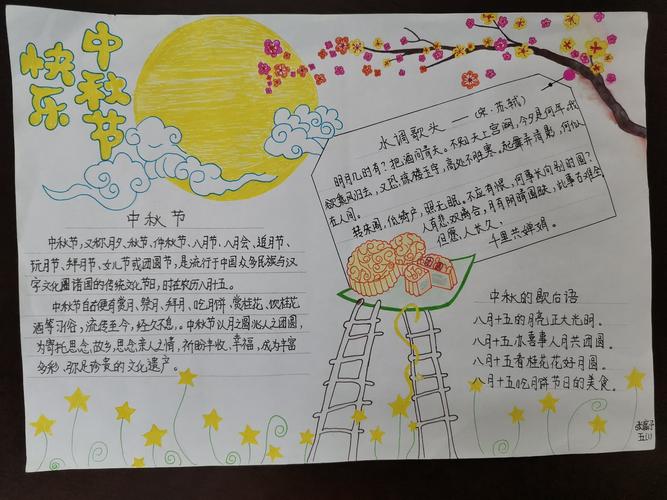 中秋节
快乐
水调歌头——(宋·苏轼)
明月几时有？把酒问青天。不知天上宫阙，今夕是何年。我
欲乘风归去，又恐琼楼玉宇，高处不胜寒。起舞弄清影，何似
在人间。
转朱阁，低绮户，照无眠。不应有恨，何事长向别时圆？
人有悲欢离合，月有阴晴圆缺，此事古难全
但愿人长久，
千里共婵娟。
中秋节
中秋节，又称月夕、秋节、仲秋节、八月节、八月会、追月节、
玩月节、拜月节、女儿节或团圆节，是流行于中国众多民族与汉
字文化圈诸国的传统文化节日，时在农历八月十五。
中秋节自古便有赏月、祭月、拜月、吃月饼、赏桂花、饮桂花
酒等习俗，流传至今，经久不息。中秋节以月之圆兆人之团圆，
为寄托思念故乡，思念亲人之情，祈盼丰收、幸福，成为丰富
多彩、弥足珍贵的文化遗产。
中秋的歇后语
八月十五的月亮正大光明。
八月十五办喜事人月共团圆。
八月十五看桂花花好月圆。
八月十五吃月饼节日的美食。
五(1)